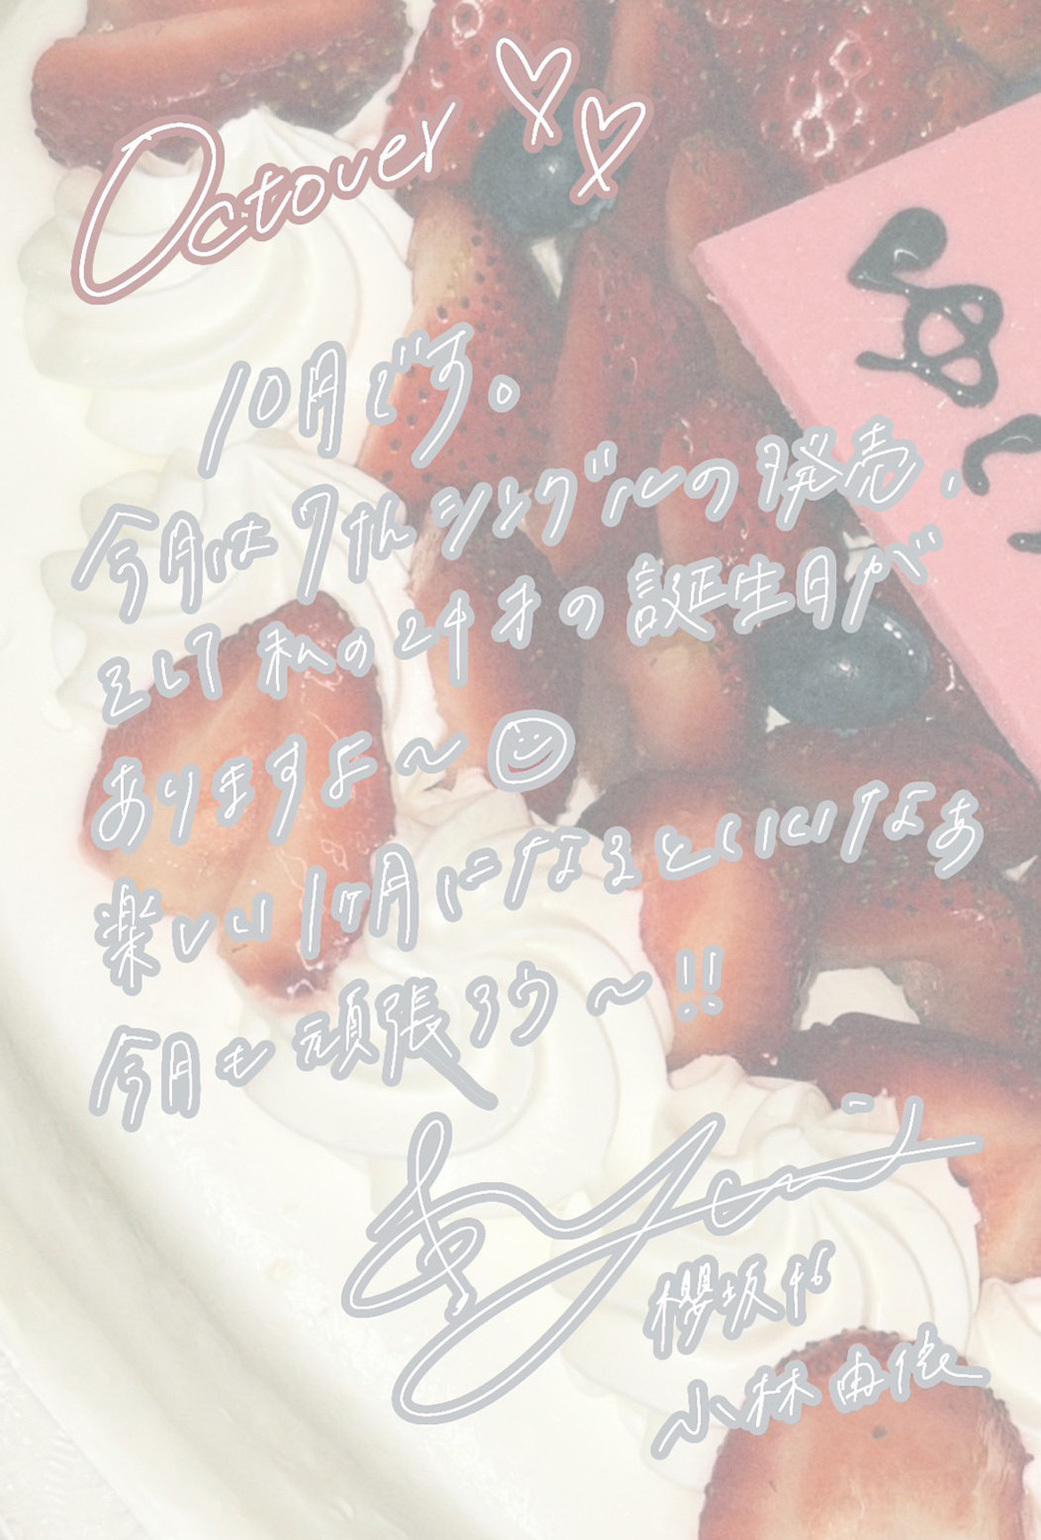 Octouer ♡♡
10月です。
今月は7thシングルの発売、
そして私の24才の誕生日が
ありますよ〜☺
楽しい1ヶ月になるといいなぁ
今月も頑張ろう〜!!
Yui
櫻坂46
小林由依